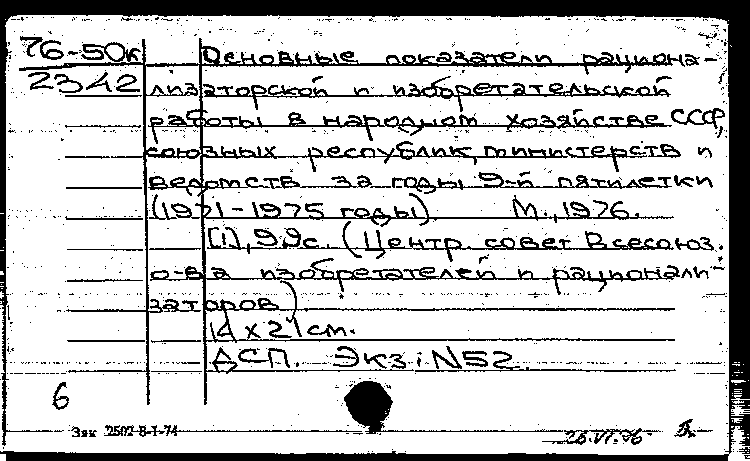 76-50к
2342
Основные показатели рациона-
лизаторской и изобретательской
работы в народном хозяйстве СССР,
союзных республик, министерств и
ведомств за годы 9-й пятилетки
(1971-1975 годы). М., 1976.
[1], 99с. (Центр. совет Всесоюз.
о-ва изобретателей и рационали-
заторов)
14 x 21 см.
ДСП. Экз: N52.
6
Зак 2502-В-I-74
26.VI.96